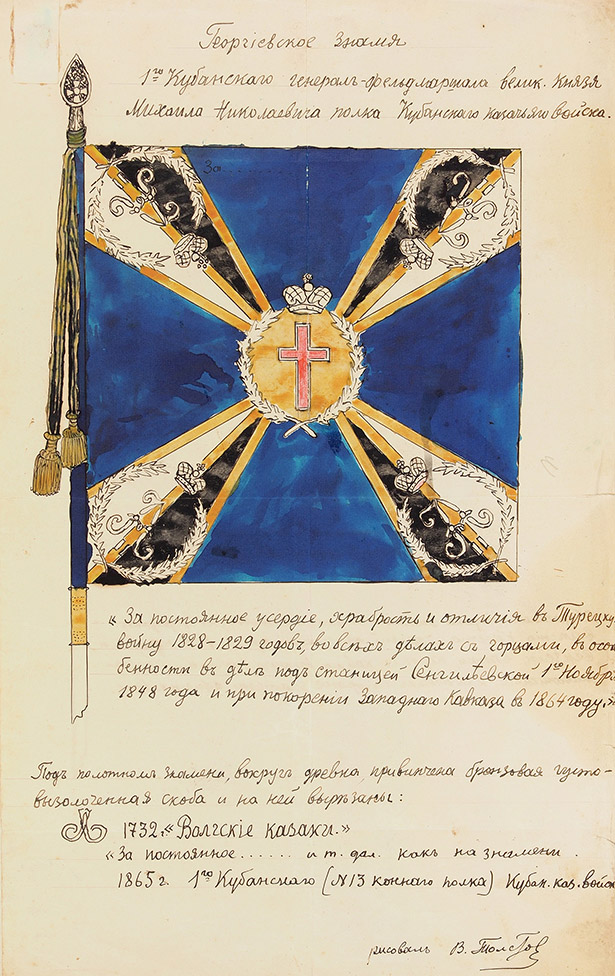 Георгіевское знамя
1го Кубанскаго генералъ-фельдмаршала велик. Князя
Михаила Николаевича полка Кубанскаго казачьяго войска.
За . . . . . . . . . .
„За постоянное усердіе, храбрость и отличія въ Турецку
войну 1828-1829 годовъ, во всѣхъ дѣлахъ съ горцами, въ осо
бенности въ дѣлѣ подъ станицей Сенгилѣевской 1го Ноябр
1848 года и при покореніи Западнаго Кавказа въ 1864 году.“
Подъ полотномъ знамени, вокругъ древка, привинчена бронзовая густо-
вызолоченная скоба и на ней вырѣзаны:
1732. „Волгскіе казаки.“
„За постоянное . . . . . . и т. дал. какъ на знамени.
1865 г. 1го Кубанскаго (N 13 коннаго полка) Кубан. каз. войск
рисовалъ В. Толстов